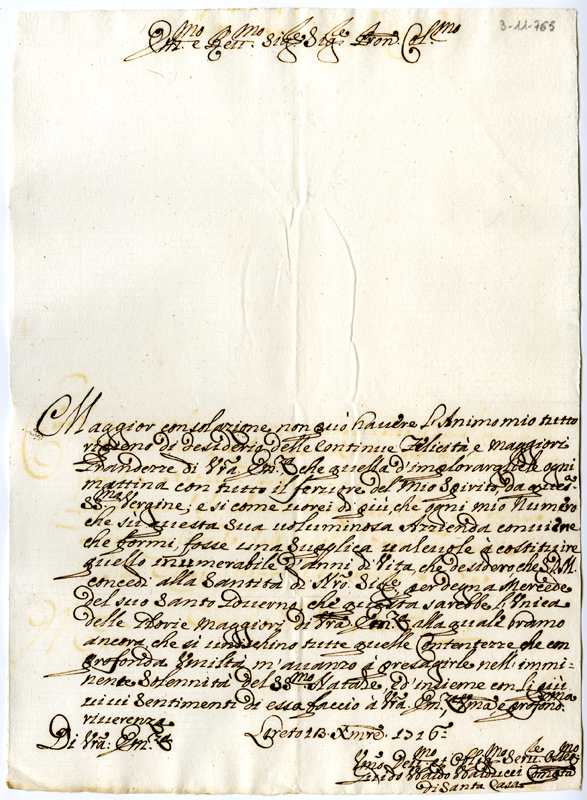 3-11-765
Em.mo e Rev.mo Sig.re Sig.re Pron. Col.mo
Maggior consolazione, non può havere L'Animo mio tutto
ripieno di desiderio delle continue Felicità, e maggiori
Grandezze di V'ra Em.za che quella d'implorargliele ogni
mattina con tutto il fervore del mio Spirito, da questa
SS.ma Vergine; e si come vorei di più, che ogni mio Numero
che sù questa sua voluminosa Azienda conviene
che formi, fosse una supplica valevole à costituire
quello innumerabile d'anni di Vita, che desidero che S.D.M.
concedi alla Santità di N'ro Sig.re, per degna Mercede
del suo Santo Governo, che questa sarebbe l'Unica
delle Glorie maggiori di V'ra Em.za alla quale bramo
ancora, che si unischino tutte quelle Contentezze, che con
profonda Umiltà m'avanzo à presagirle nell'immi-
nente Solennità del SS.mo Natale, ed insieme con li più
vivi Sentimenti di essa faccio à V'ra Em.za Uma e profond.ma
riverenza
Di V'ra Em.za Loreto 13 Xmre 1716
Umo Dev.mo et Obl.mo Serv.le
Guido Ubaldo Balducci Comp.ta
Di Santa Casa